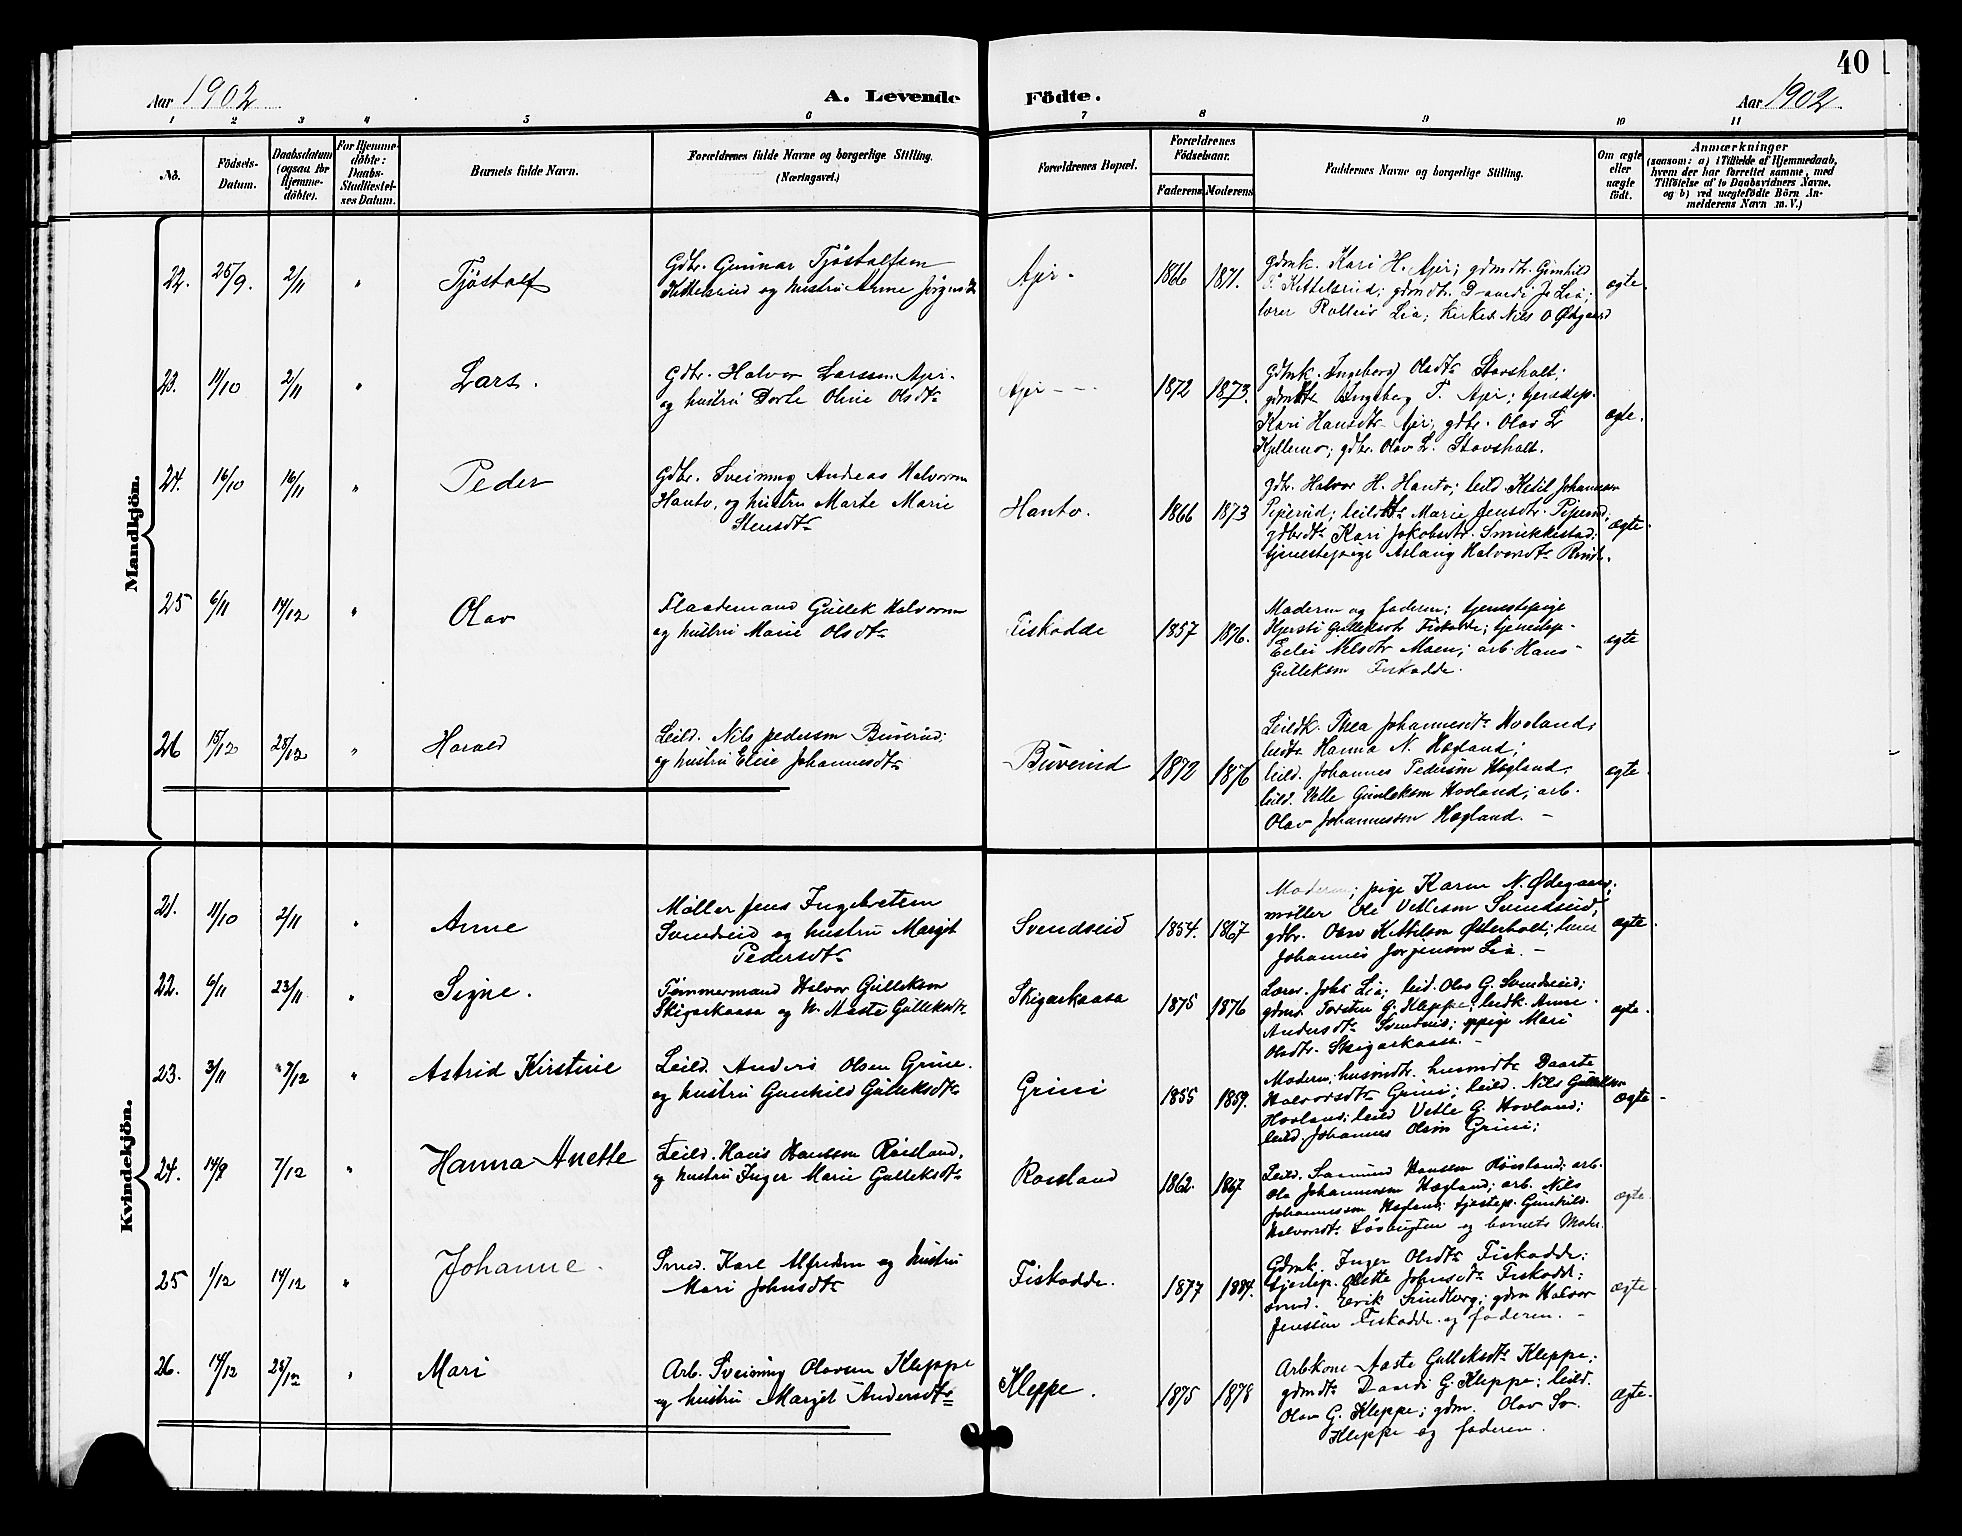 40
Aar 1902
A. Levende Födte.
Aar 1902.
1 2 3 4 5 6 7 8 9 10 11
No.
Födsels-Datum.
Daabsdatum (ogsaa for Hjemmedöbte).
For Hjemmedöbte: Daabs-Stadfæstelses Datum.
Barnets fulde Navn.
Forældrenes fulde Navne og borgerlige Stilling.
(Næringsvei.)
Forældrenes Bopæl.
Forældrenes Födselsaar.
Faderens Moderens
Faddernes Navne og borgerlige Stilling.
Om ægte eller uægte födt.
Anmærkninger
(saasom: a) i Tilfælde af Hjemmedaab,
hvem der har forrettet samme, med
Tilföielse af to Daabsvidners Navne,
og b) ved uægtefödte Börn An-
melderens Navn m. V.)
Mandkjön.
22. 25/9. 2/11 " Tjöstolf
Gdbr. Gunnar Tjöstolfsen
Kittelsrud og hustru Anne
Ajer - 1866 1871.
gdmk. Kari H. Ajer; gdmdtr. Gunhild
Kittelsrud; gdmdtr. J. Lia;
lærer Lia; Nils O Ødegaard
ægte.
23. 11/10 2/11 " Lars.
Gdbr. Halvor Larssen Ajer.
og hustru Dorte Oline Olsdtr
Ajer - 1872 1873.
Gdmk. Ingeborg Olsdtr Stavsholt;
Ingeborg T. Ajer; tjenstep.
Kari Hansdtr Ajer; gdbr. Olav L
gdbr. Olav L. Stavsholt.
ægte.
24. 16/10 16/11 " Peder
Gdbr. Sveinung Andreas Halvorsen
Hanto, og hustru Marte Marie
Stensdtr
Hanto. 1866 1873
gdbr. Halvor H. Hanto; leil. Ketil Johannesen
Marie Jensdtr.
Kari Jakobsdtr.
tjenestepige Aslaug Halvorsdtr
ægte.
25 6/11 14/12 " Olav
Flaademand Gullek Halvorsen
og hustru Marie Olsdtr
Fiskodde 1857 1876.
Moderen og faderen; tjenestepige
Kjersti Gulleksdtr Fiskodde; tjenstep.
Nilsdtr Moen; arb. Hans
Gulleksen Fiskodde.
ægte
26 15/12 25/12 " Harald
Leil. Nils Pedersen Buverud;
og hustru Elise Johannesdtr
Buverud 1872 1876
Leildk. Thea Johannesdtr Hovland;
Hanna N. Hægland;
leil. Johannes Pedersen Hægland,
leil. Vetle Gulleksen Hovland; arb.
Olav Johannessen Hægland. -
ægte.
Kvindekjön.
21. 11/10 2/11 " Anne
Møller Jens Ingebretsen
Svendseid og hustru Margit
Pedersdtr
Svendseid 1854. 1867
Moderen; pige Karen N. Ødegaard;
møller Ole Vetlesen Svendseid;
gdbr. Olav Kittilsen Østerholt; lærer
Johannes Jørgensen Lia. -
ægte.
22. 6/11 23/11 " Signe.
Tømmermand Halvor Gulleksen
Skigarkaasa og h. Aaste Gulleksdtr
Skigarkaasa 1875 1876
Lærer Johs Lia; leil. Olav G. Svendseid;
gdmd. Torsten G. Kleppe; leildk. Anne
Andersdtr Svendseid; pige Mari
Olsdtr. Skigarkaasa. -
ægte.
23. 3/11 7/12 " Astrid Kirstine
Leil. Anders Olsen Grini.
og hustru Gunhild Gulleksdtr
Grini 1855 1859.
Moderen; husmdtr. Daarte
Halvorsdtr Grini; leil. Nils Gulleksen
Hovland; leil Vetle G. Hovland;
leil. Johannes Olsen Grini;
ægte -
24. 14/9 7/12 " Hanna Anette
Leil. Hans Hanssen Røisland,
og hustru Inger Marie Gulleksdtr
Røisland 1862. 1867
Leil. Hansen Røisland; arb.
Ola Johannessen Hægland; arb. Nils
Johannessen Hægland; tjenstep. Gunhild.
Halvorsdtr og barnets Moder.
ægte.
25 1/12 14/12 " Johanne.
Smed. Karl Alfredsen og hustru
Mari Johnsdtr
Fiskodde. 1877 1884.
Gdmk. Inger Olsdtr Fiskodde;
tjenstep. Johnsdtr Fiskodde;
smed. Erik Sundberg; gdm Halvor
Jenssen Fiskodde og faderen. -
ægte.
26. 14/12 25/12 " Mari
Arb. Sveinung Olavsen Kleppe
og hustru Margit Andersdtr
Kleppe. 1875 1878
Arbkone Aaste Gulleksdtr Kleppe;
gdmdtr Daardi G. Kleppe; leil.
Olav G. Kleppe; gdm. Olav Sv.
Kleppe og faderen.
Ægte.